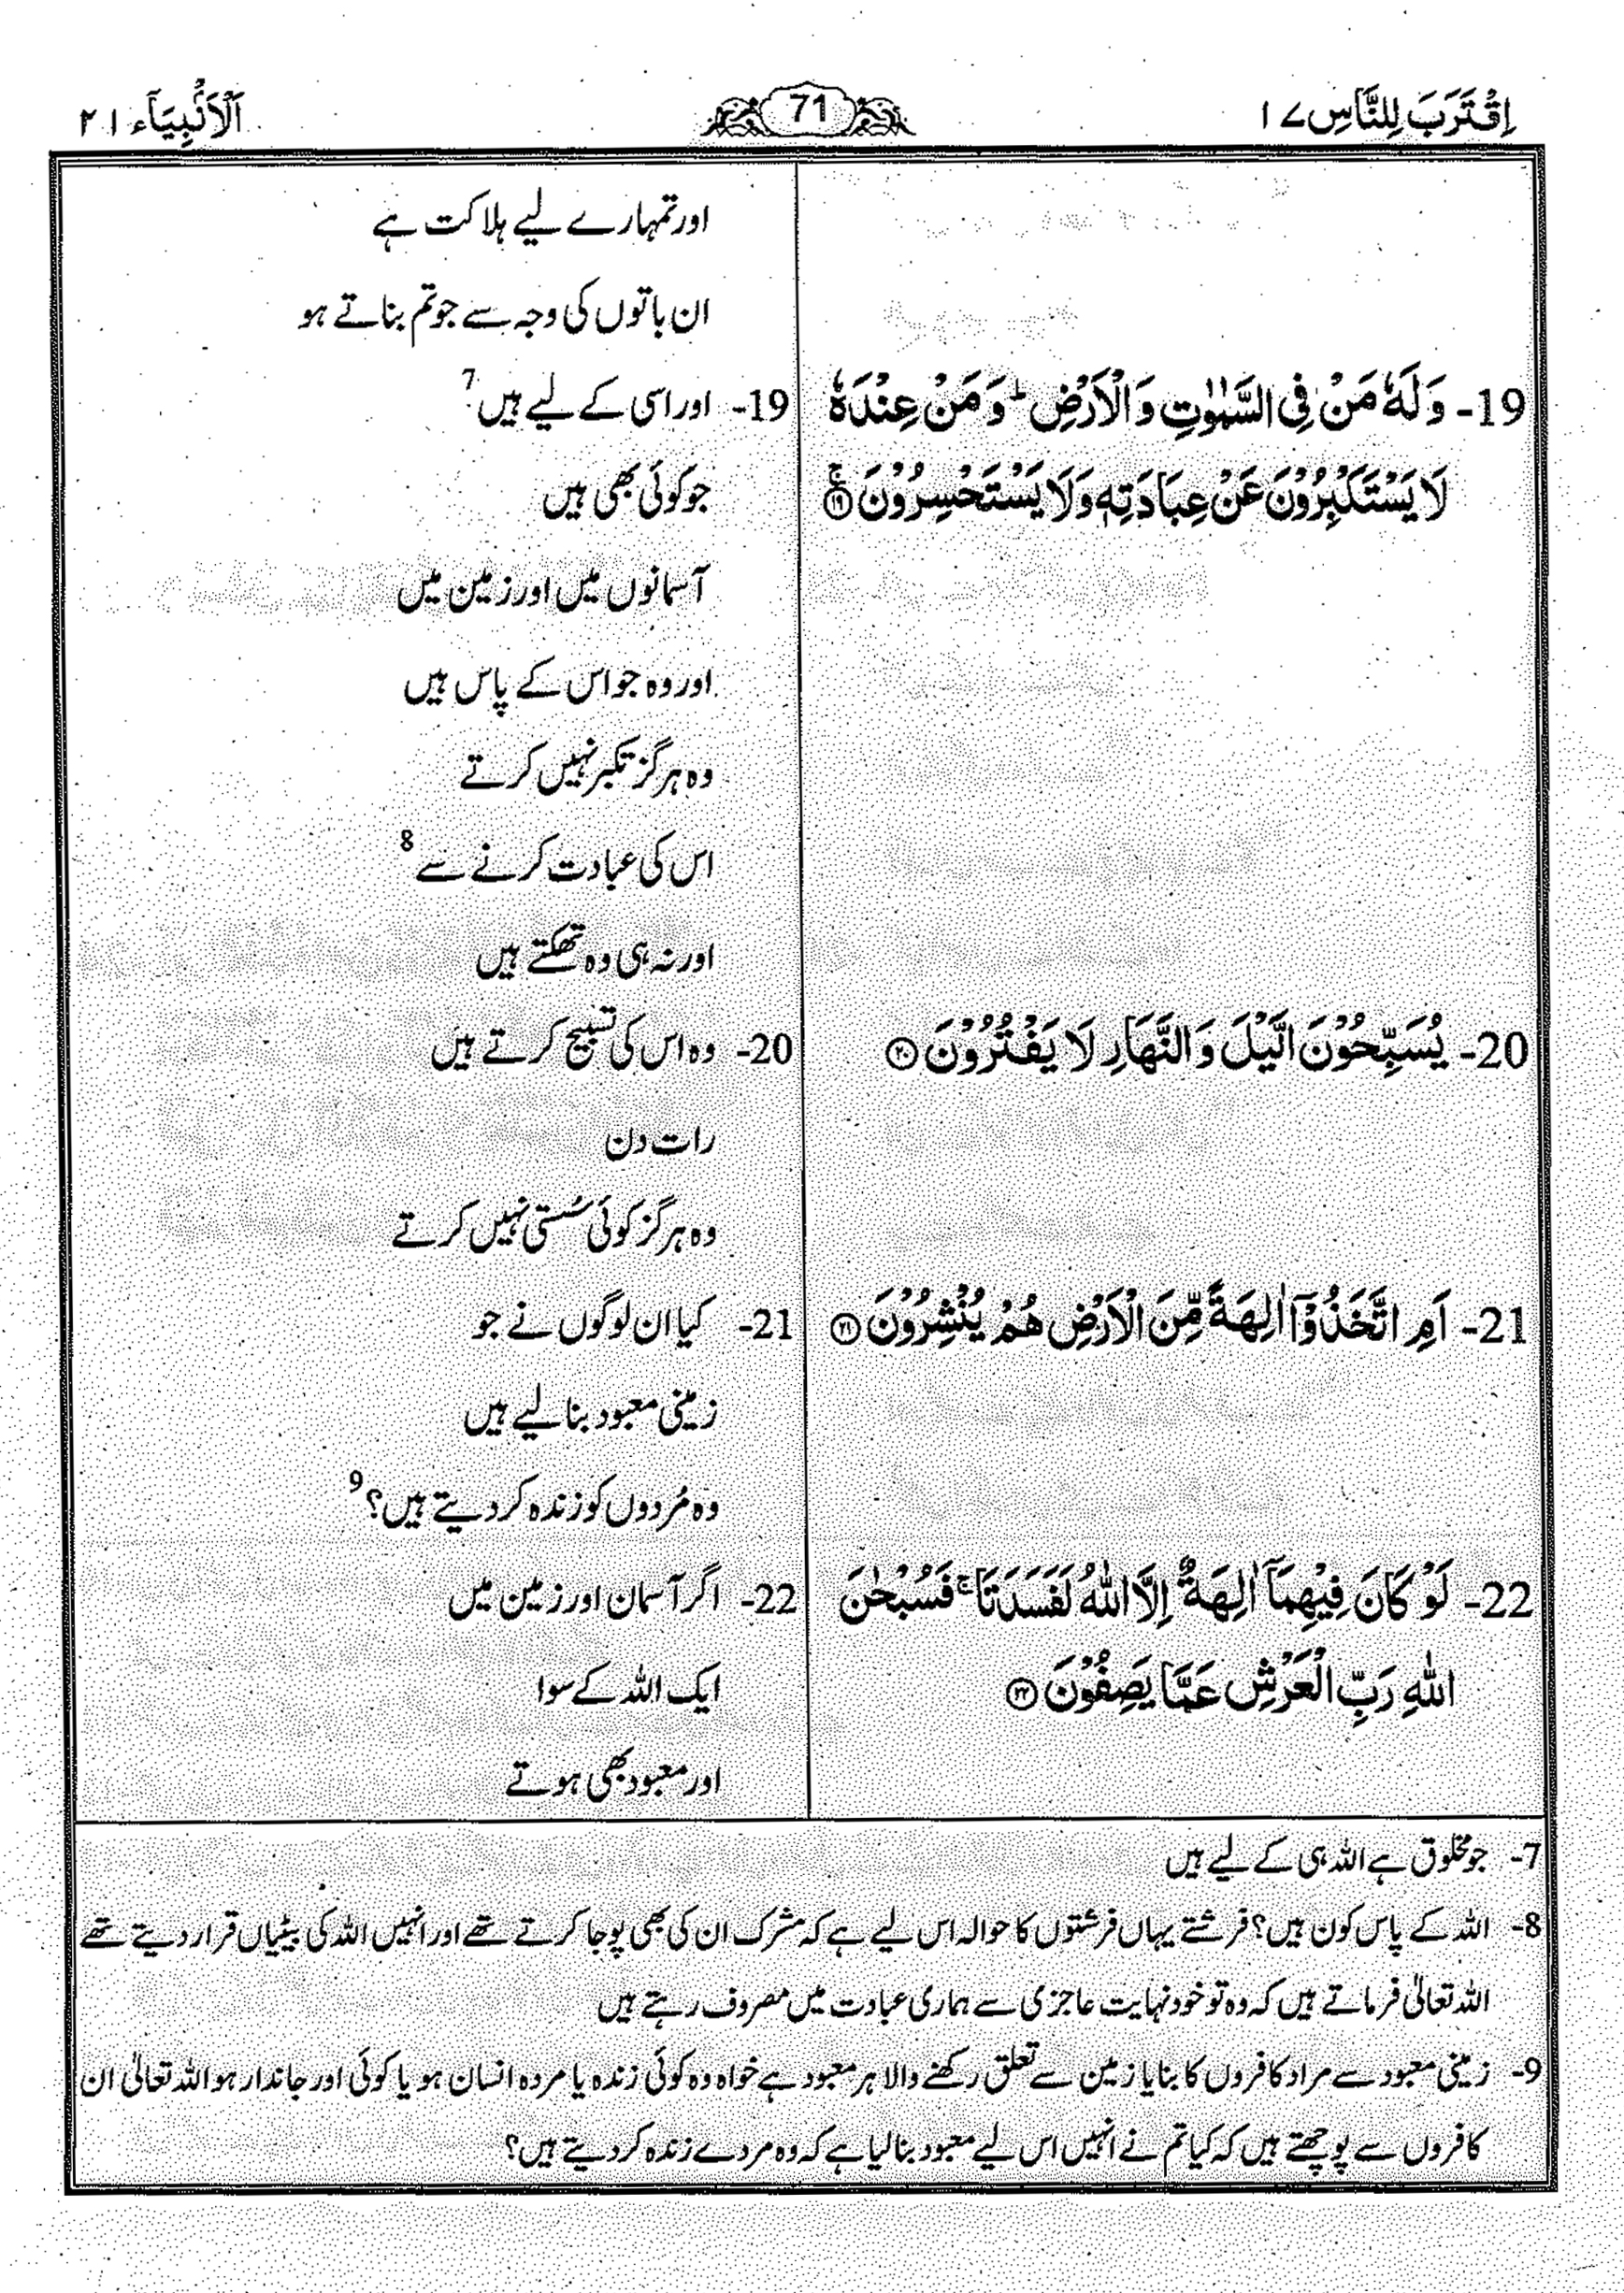 اِقْتَرَبَ لِلنَّاسِ ١٧
71
اَلْاَنْۢبِيَآء ٢١
اور تمہارے لیے ہلاکت ہے
ان باتوں کی وجہ سے جو تم بناتے ہو
19- وَلَهٗ مَنْ فِى السَّمٰوٰتِ وَالْاَرْضِ ؕ وَمَنْ عِنْدَهٗ
لَا يَسْتَكْبِرُوْنَ عَنْ عِبَادَتِهٖ وَلَا يَسْتَحْسِرُوْنَ ۚ ⑲
19- اور اسی کے لیے ہیں 7
جو کوئی بھی ہیں
آسمانوں میں اور زمین میں
اور وہ جو اس کے پاس ہیں
وہ ہرگز تکبر نہیں کرتے
اس کی عبادت کرنے سے 8
اور نہ ہی وہ تھکتے ہیں
20- يُسَبِّحُوْنَ الَّيْلَ وَالنَّهَارِ لَا يَفْتُرُوْنَ ⑳
20- وہ اس کی تسبیح کرتے ہیں
رات دن
وہ ہرگز کوئی سُستی نہیں کرتے
21- اَمِ اتَّخَذُوْٓا اٰلِهَةً مِّنَ الْاَرْضِ هُمْ يُنْشِرُوْنَ ㉑
21- کیا ان لوگوں نے جو
زمینی معبود بنا لیے ہیں
وہ مُردوں کو زندہ کر دیتے ہیں؟ 9
22- لَوْ كَانَ فِيْهِمَآ اٰلِهَةٌ اِلَّا اللّٰهُ لَفَسَدَتَا ۚ فَسُبْحٰنَ
اللّٰهِ رَبِّ الْعَرْشِ عَمَّا يَصِفُوْنَ ㉒
22- اگر آسمان اور زمین میں
ایک اللہ کے سوا
اور معبود بھی ہوتے
7- جو مخلوق ہے اللہ ہی کے لیے ہیں
8- اللہ کے پاس کون ہیں؟ فرشتے یہاں فرشتوں کا حوالہ اس لیے ہے کہ مشرک ان کی بھی پوجا کرتے تھے اور انہیں اللہ کی بیٹیاں قرار دیتے تھے
اللہ تعالیٰ فرماتے ہیں کہ وہ تو خود نہایت عاجزی سے ہماری عبادت میں مصروف رہتے ہیں
9- زمینی معبود سے مراد کافروں کا بنایا زمین سے تعلق رکھنے والا ہر معبود ہے خواہ وہ کوئی زندہ یا مردہ انسان ہو یا کوئی اور جاندار ہو اللہ تعالیٰ ان
کافروں سے پوچھتے ہیں کہ کیا تم نے انہیں اس لیے معبود بنا لیا ہے کہ وہ مردے زندہ کر دیتے ہیں؟